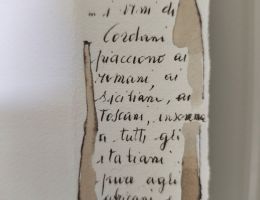 di
Cordani
piacciono ai
romani, ai
siciliani, ai
Toscani, insomma
a tutti gli
italiani
pure agli